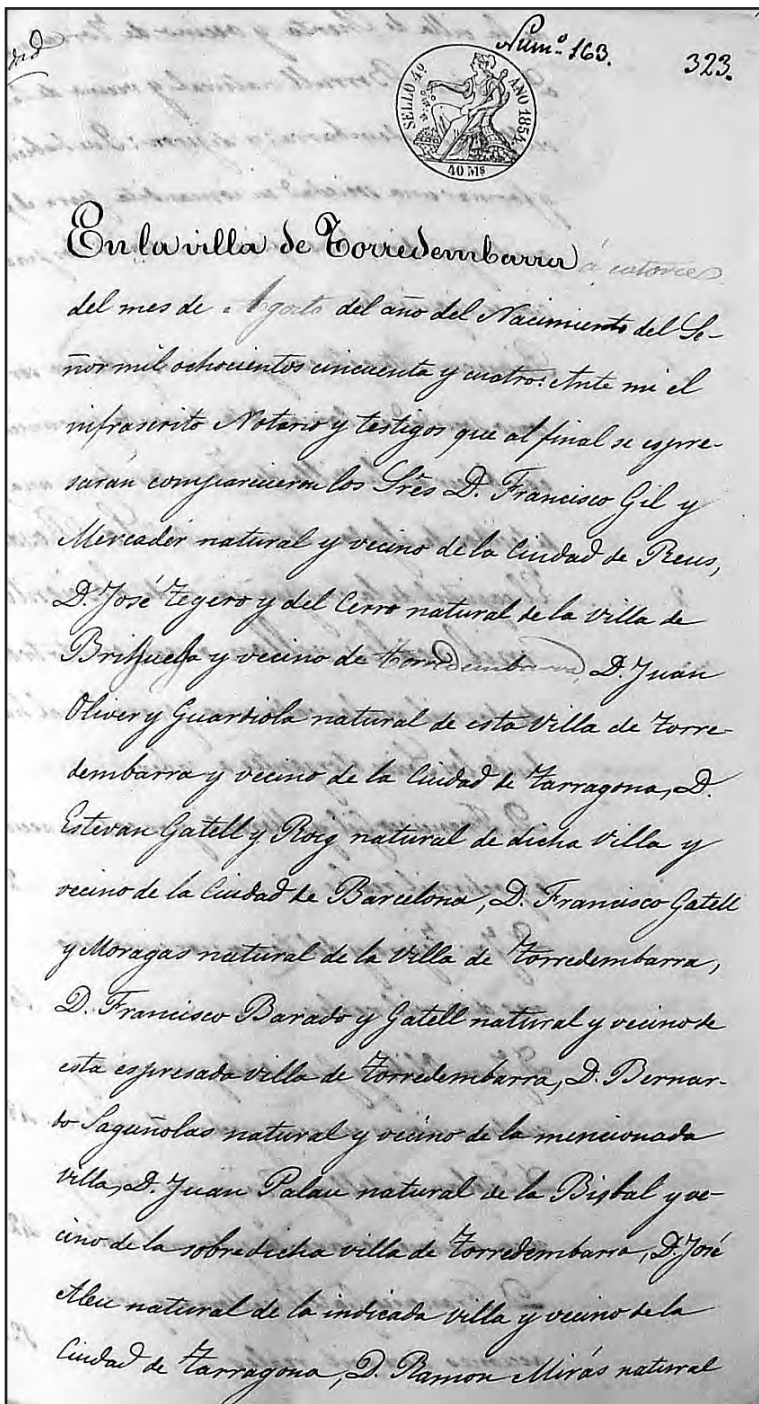 Num.º 163.
323.
SELLO 4º AÑO 1854.
40 Ms
En la villa de Torredembarra á catorce
del mes de Agosto del año del Nacimiento del Se-
ñor mil ochocientos cincuenta y cuatro: Ante mi el
infrascrito Notario y testigos que al final se espre-
sarán comparecieron los Sres D. Francisco Gil y
Mercader natural y vecino de la Ciudad de Reus,
D. José Tegero y del Cerro natural de la Villa de
Brihuega y vecino de Torredembarra, D. Juan
Oliver y Guardiola natural de esta Villa de Torre-
dembarra y vecino de la Ciudad de Tarragona, D.
Estevan Gatell y Roig natural de dicha Villa y
vecino de la Ciudad de Barcelona, D. Francisco Gatell
y Moragas natural de la Villa de Torredembarra,
D. Francisco Barado y Gatell natural y vecino de
esta espresada villa de Torredembarra, D. Bernar-
do Saguñolas natural y vecino de la mencionada
villa, D. Juan Palau natural de la Bisbal y ve-
cino de la sobredicha villa de Torredembarra, D. José
Aleu natural de la indicada villa y vecino de la
Ciudad de Tarragona, D. Ramon Mirás natural